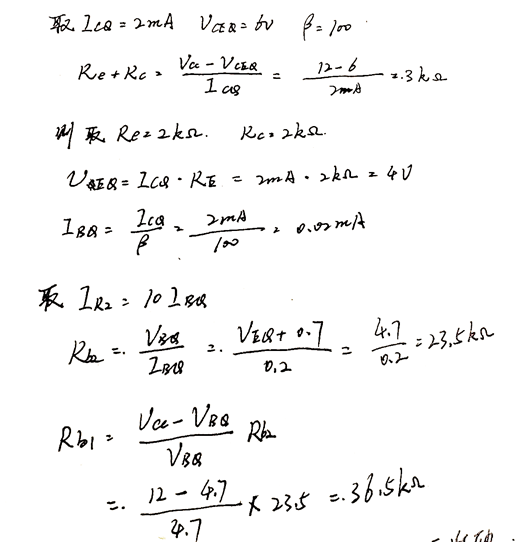 取 I_CQ = 2mA V_CEQ = 6V β = 100
Re + Rc = (Vcc - V_CEQ) / I_CQ = (12 - 6) / 2mA = 3kΩ
则取 Re = 2kΩ. Rc = 2kΩ.
V_EQ = I_CQ · R_E = 2mA · 2kΩ = 4V
I_BQ = I_CQ / β = 2mA / 100 = 0.02mA
取 I_R2 = 10 I_BQ
Rb2 = V_BQ / I_BQ = (V_EQ + 0.7) / 0.2 = 4.7 / 0.2 = 23.5kΩ
Rb1 = (Vcc - V_BQ) / V_BQ Rb2
= (12 - 4.7) / 4.7 × 23.5 = 36.5kΩ